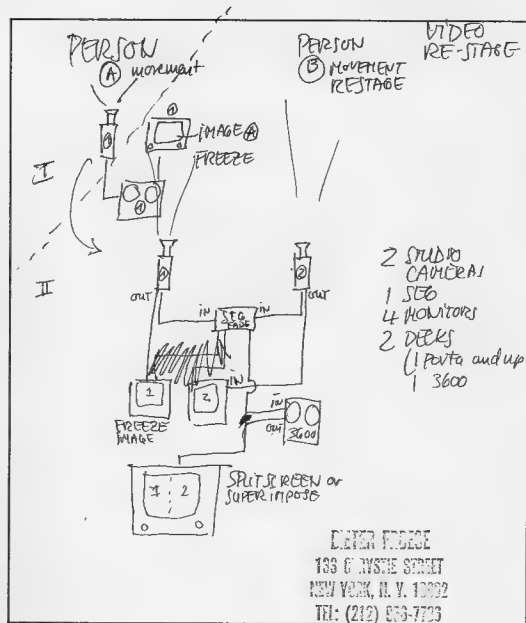 VIDEO
RE-STAGE
PERSON
Ⓐ movement
PERSON
Ⓑ MOVEMENT
RESTAGE
IMAGE Ⓐ
FREEZE
I
II
OUT
IN
SEG
FADE
IN
OUT
2 STUDIO
CAMERAS
1 SEG
4 MONITORS
2 DECKS
(1 Porta and up
1 3600
1
FREEZE
IMAGE
2
IN
IN
OUT
3600
1 2
SPLITSCREEN or
SUPERIMPOSE
DIETER FROESE
NEW YORK, N.Y.
TEL: (212)